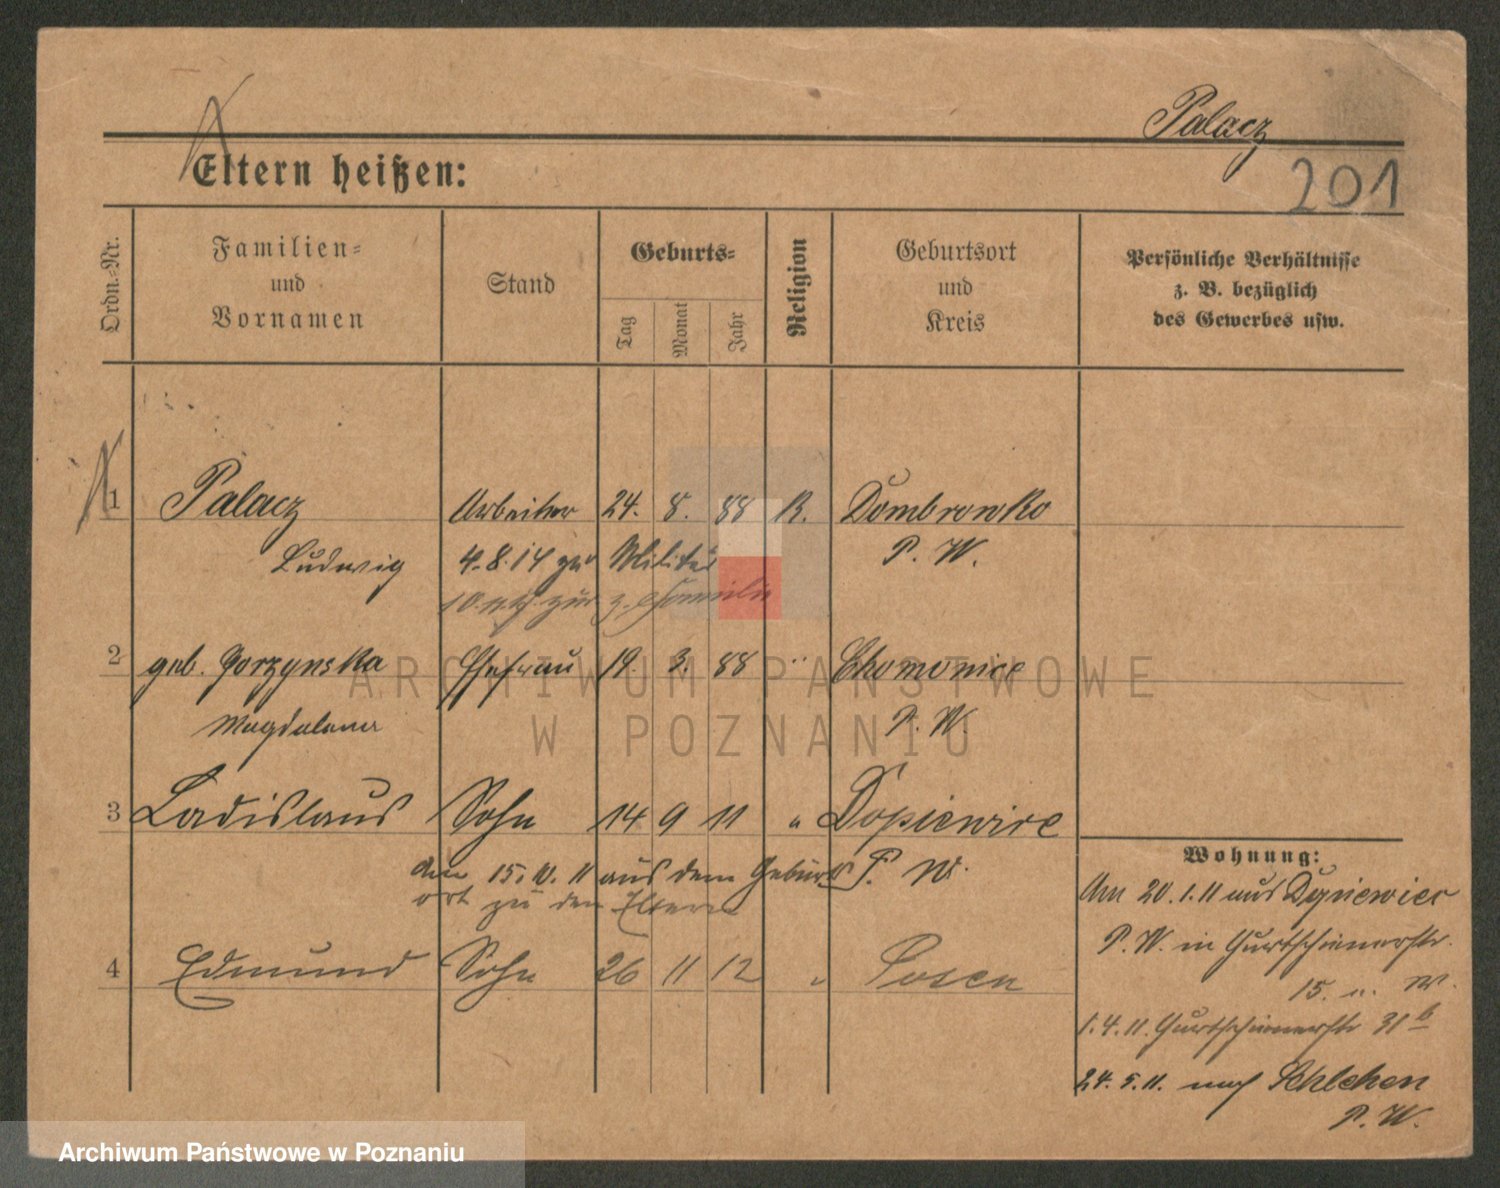 Palacz
201
Eltern heißen:
Ordn.-Nr.
Familien-
und
Vornamen
Stand
Geburts-
Tag
Monat
Jahr
Religion
Geburtsort
und
Kreis
Persönliche Verhältnisse
z. B. bezüglich
des Gewerbes usw.
1 Palacz Arbeiter 24. 8. 88 K. Dombrowko
Ludwig 4.8.14 zu Militär P. W.
zur z. Familie
2 geb. Gorzynska Ehefrau 19. 3. 88 " Chomonice
Magdalena P. W.
3 Ladislaus Sohn 14 9 11 " Dopiewice
den 15. 10. 11 aus dem Geburts P. W.
ort zu den Eltern
4 Edmund Sohn 26 11 12 " Posen
Wohnung:
Am 20.1.11 aus
P. W. in Gurtschinerstr.
15. n. W.
1.4.11. Gurtschinerstr 31b
24.5.11. nach Schlehen
P. W.
ARCHIWUM PAŃSTWOWE
W POZNANIU
Archiwum Państwowe w Poznaniu